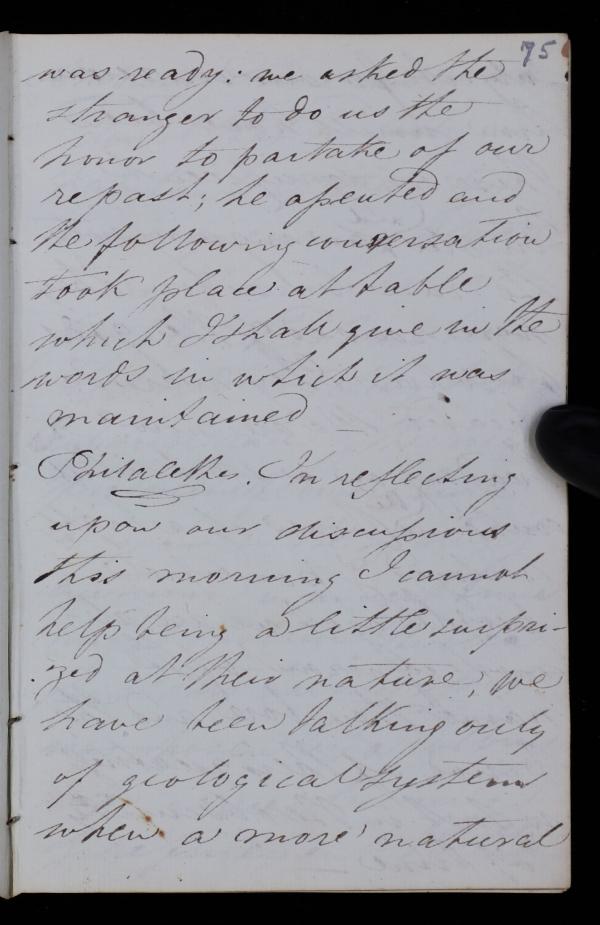 75
was ready: we asked the
stranger to do us the
honor to partake of our
repast; he assented and
the following conversation
took place at table
which I shall give in the
words in which it was
maintained
Philalethes. In reflecting
upon our discussions
this morning I cannot
help being a little surpri-
-zed at their nature; we
have been talking only
of geological systems
when a more natural